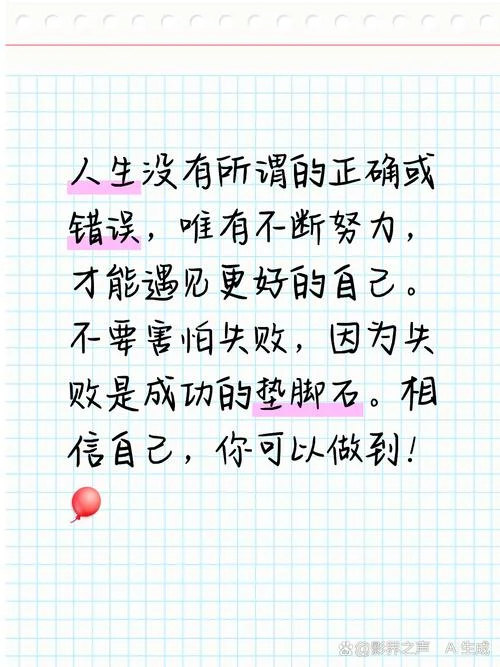 人生没有所谓的正确或
错误，唯有不断努力，
才能遇见更好的自己。
不要害怕失败，因为失
败是成功的垫脚石。相
信自己，你可以做到！
@影界之声 AI生成